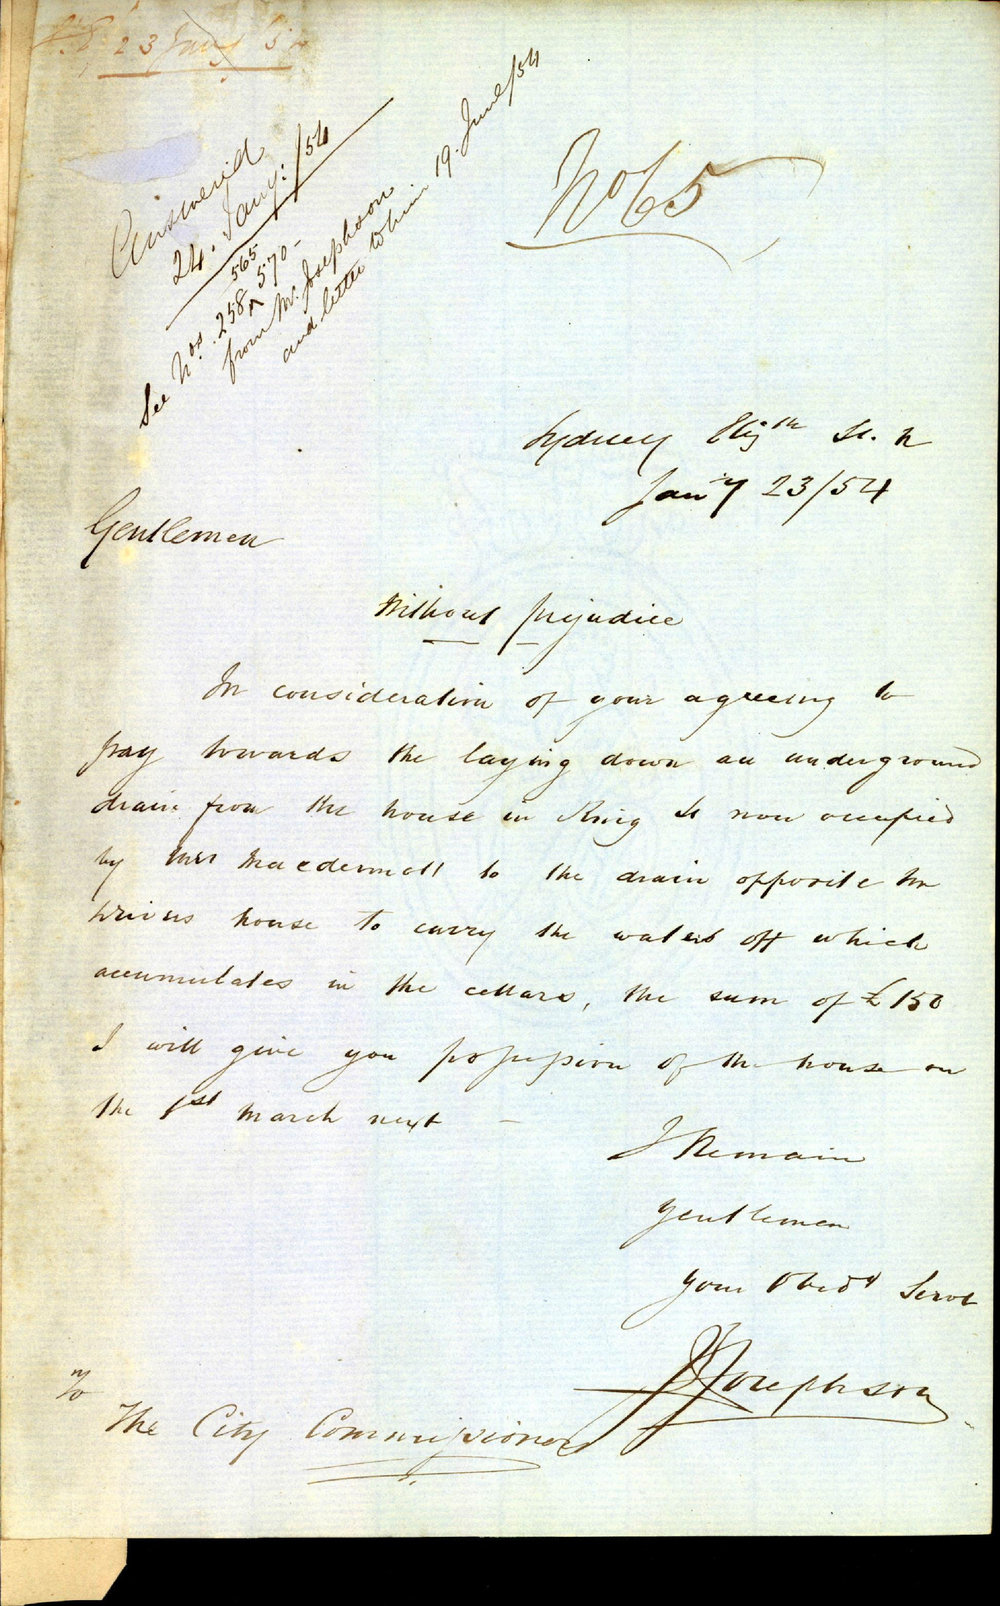 23 Jany 54
Answered
24. Jany: /54
565
See Nos. 258 ^ 570 -
from Mr. Josephson
and letter to him 19. June/54
No 65
Sydney Elizth St. N
Jany 23/54
Gentlemen
Without prejudice
In consideration of your agreeing to
pay towards the laying down an underground
drain from the house in King St now occupied
by Mrs Macdermott to the drain opposite
house to carry the waters off which
accumulates in the cellars, the sum of £150
I will give you possession of the house on
the 1st March next -
I Remain
Gentlemen
Your Obedt Servt
J Josephson
To
The City Commissioners